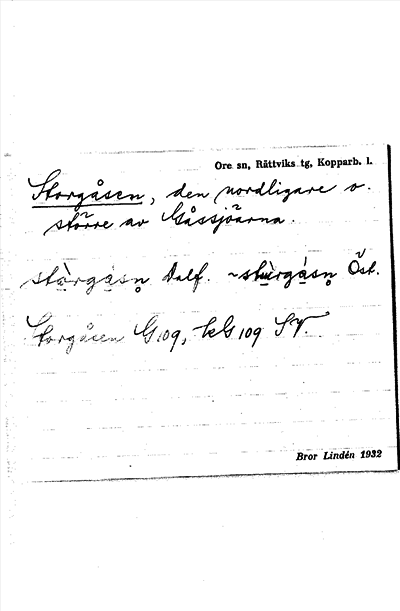 Ore sn, Rättviks tg, Kopparb. l.
Storgåsen, den nordligare o.
större av Gåssjöarna.
stòrgåsn̥ Dalf. ~ stùrgåsn̥ Öst.
Storgåsen G 109, kG 109 SV.
Bror Lindén 1932